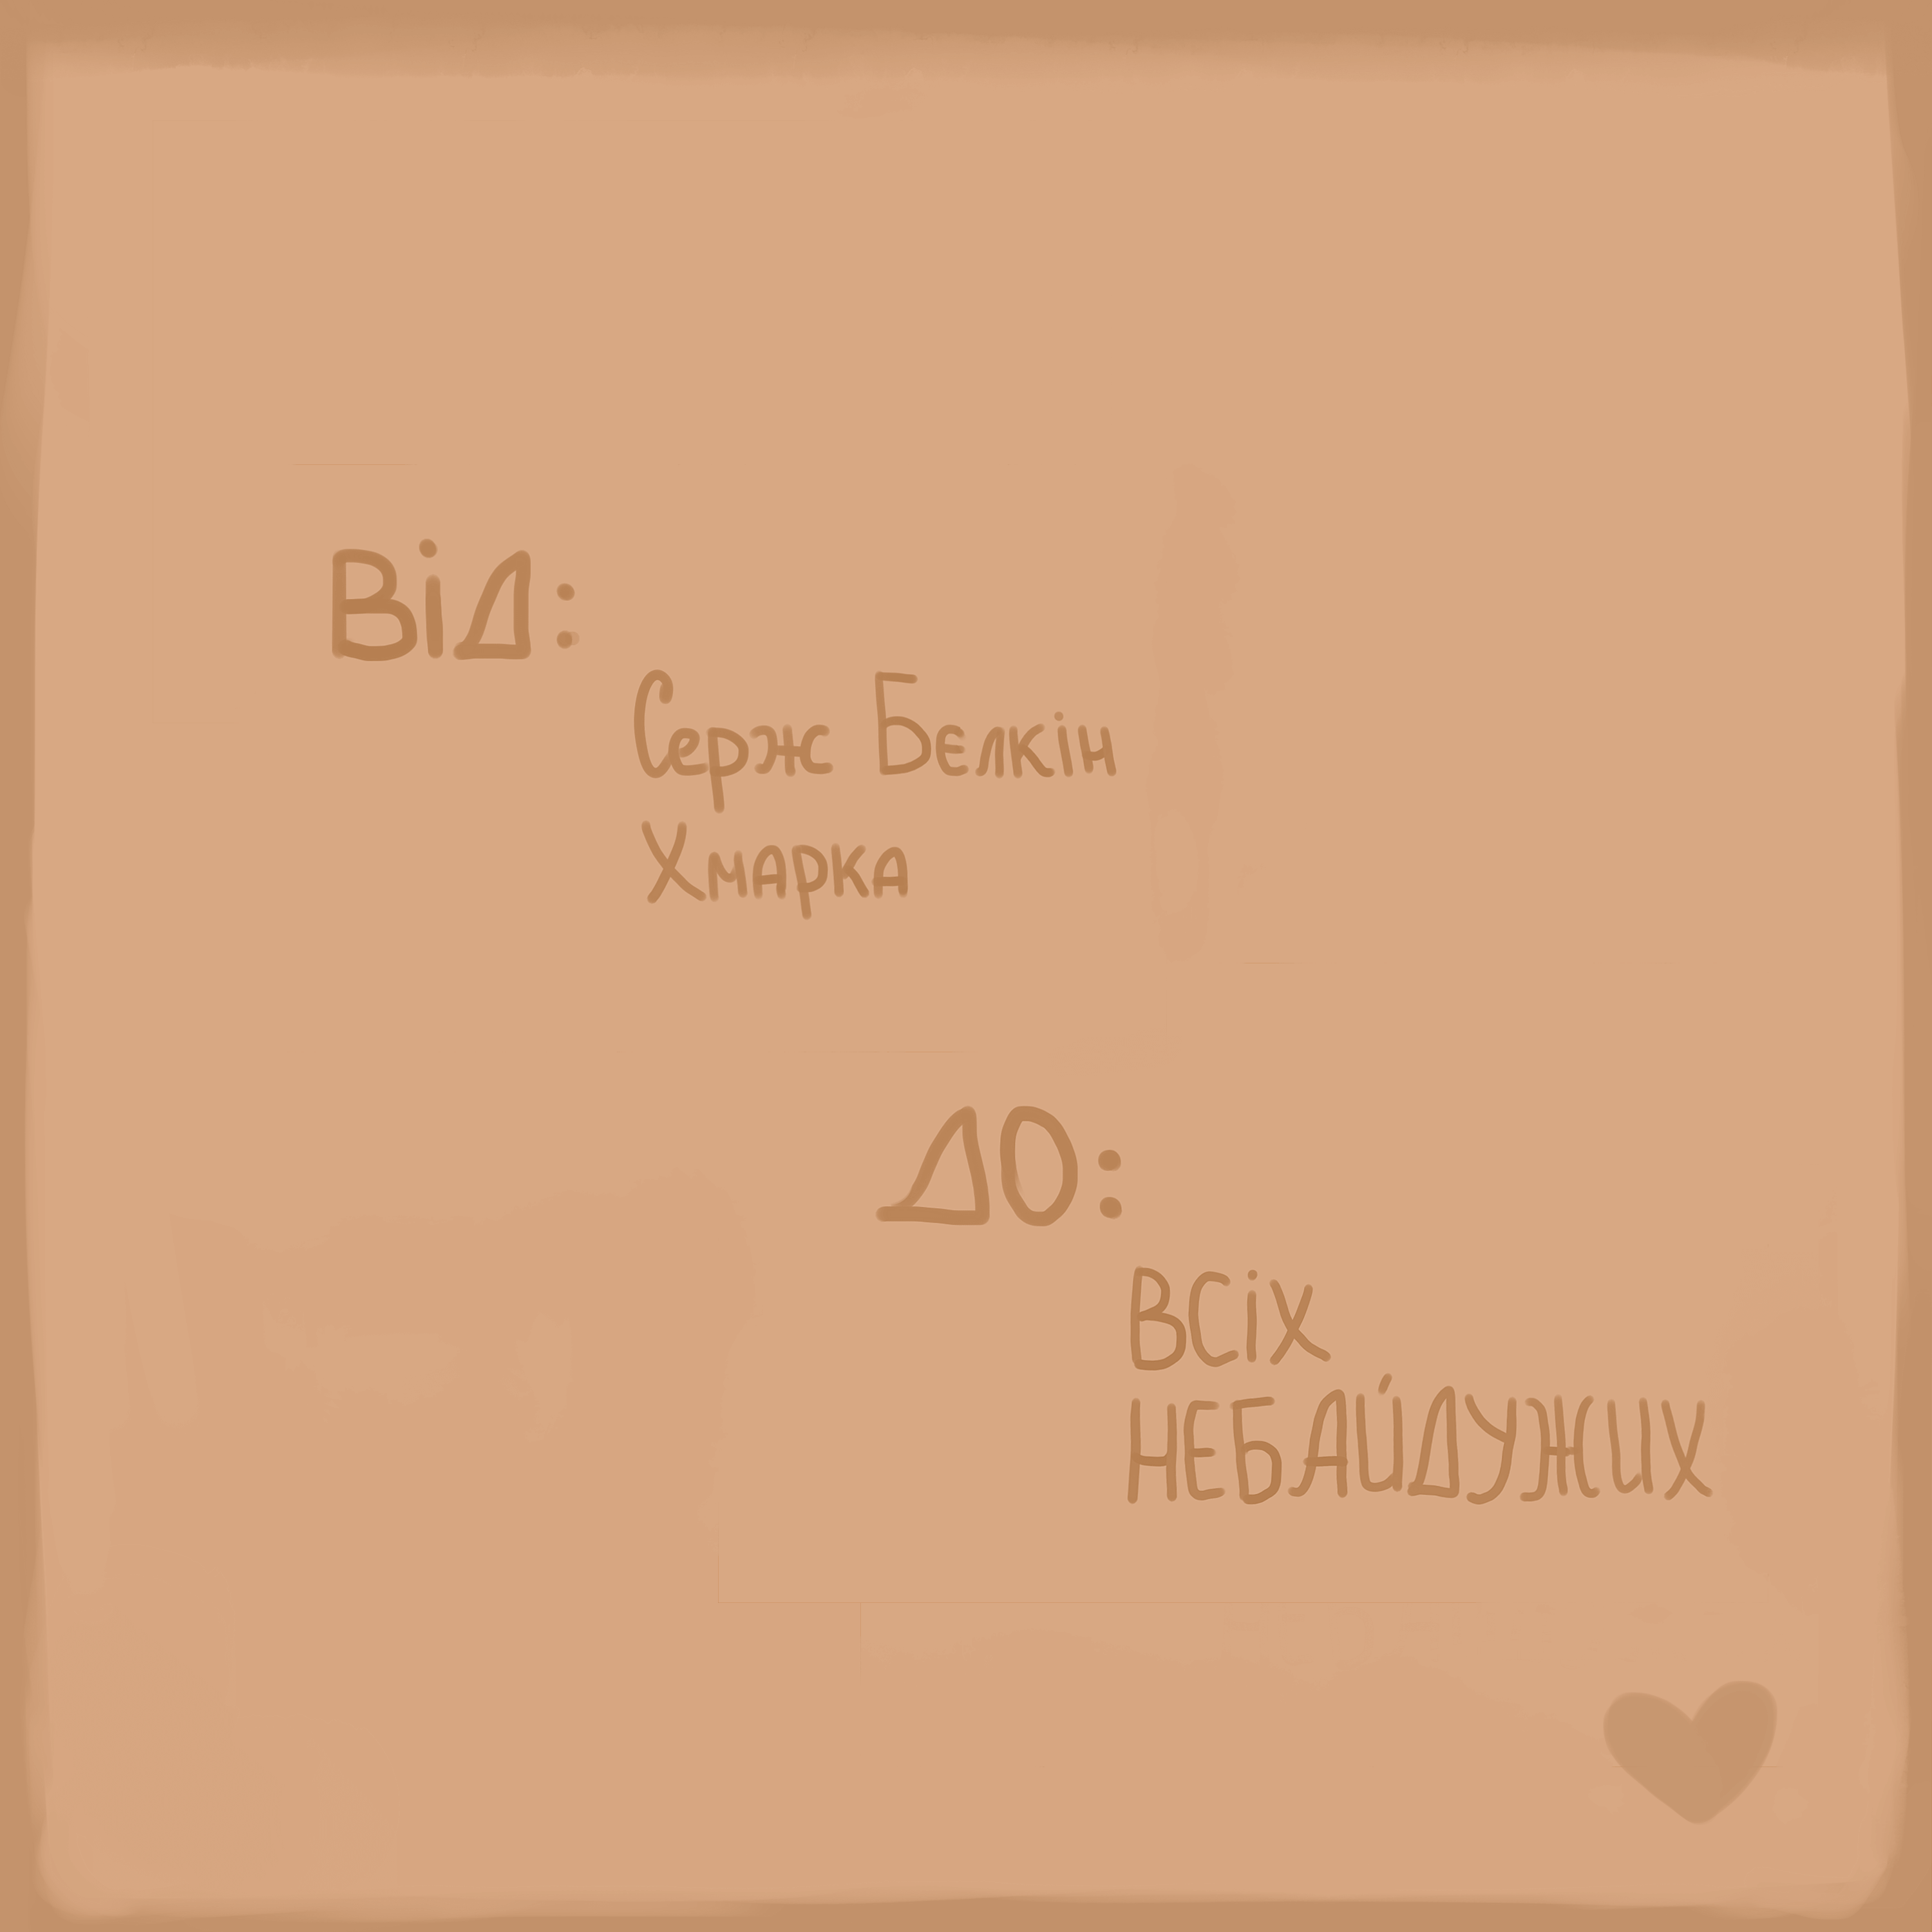 Від:
Серж Белкін
Хмарка
ДО:
ВСіХ
НЕБАЙДУЖИХ